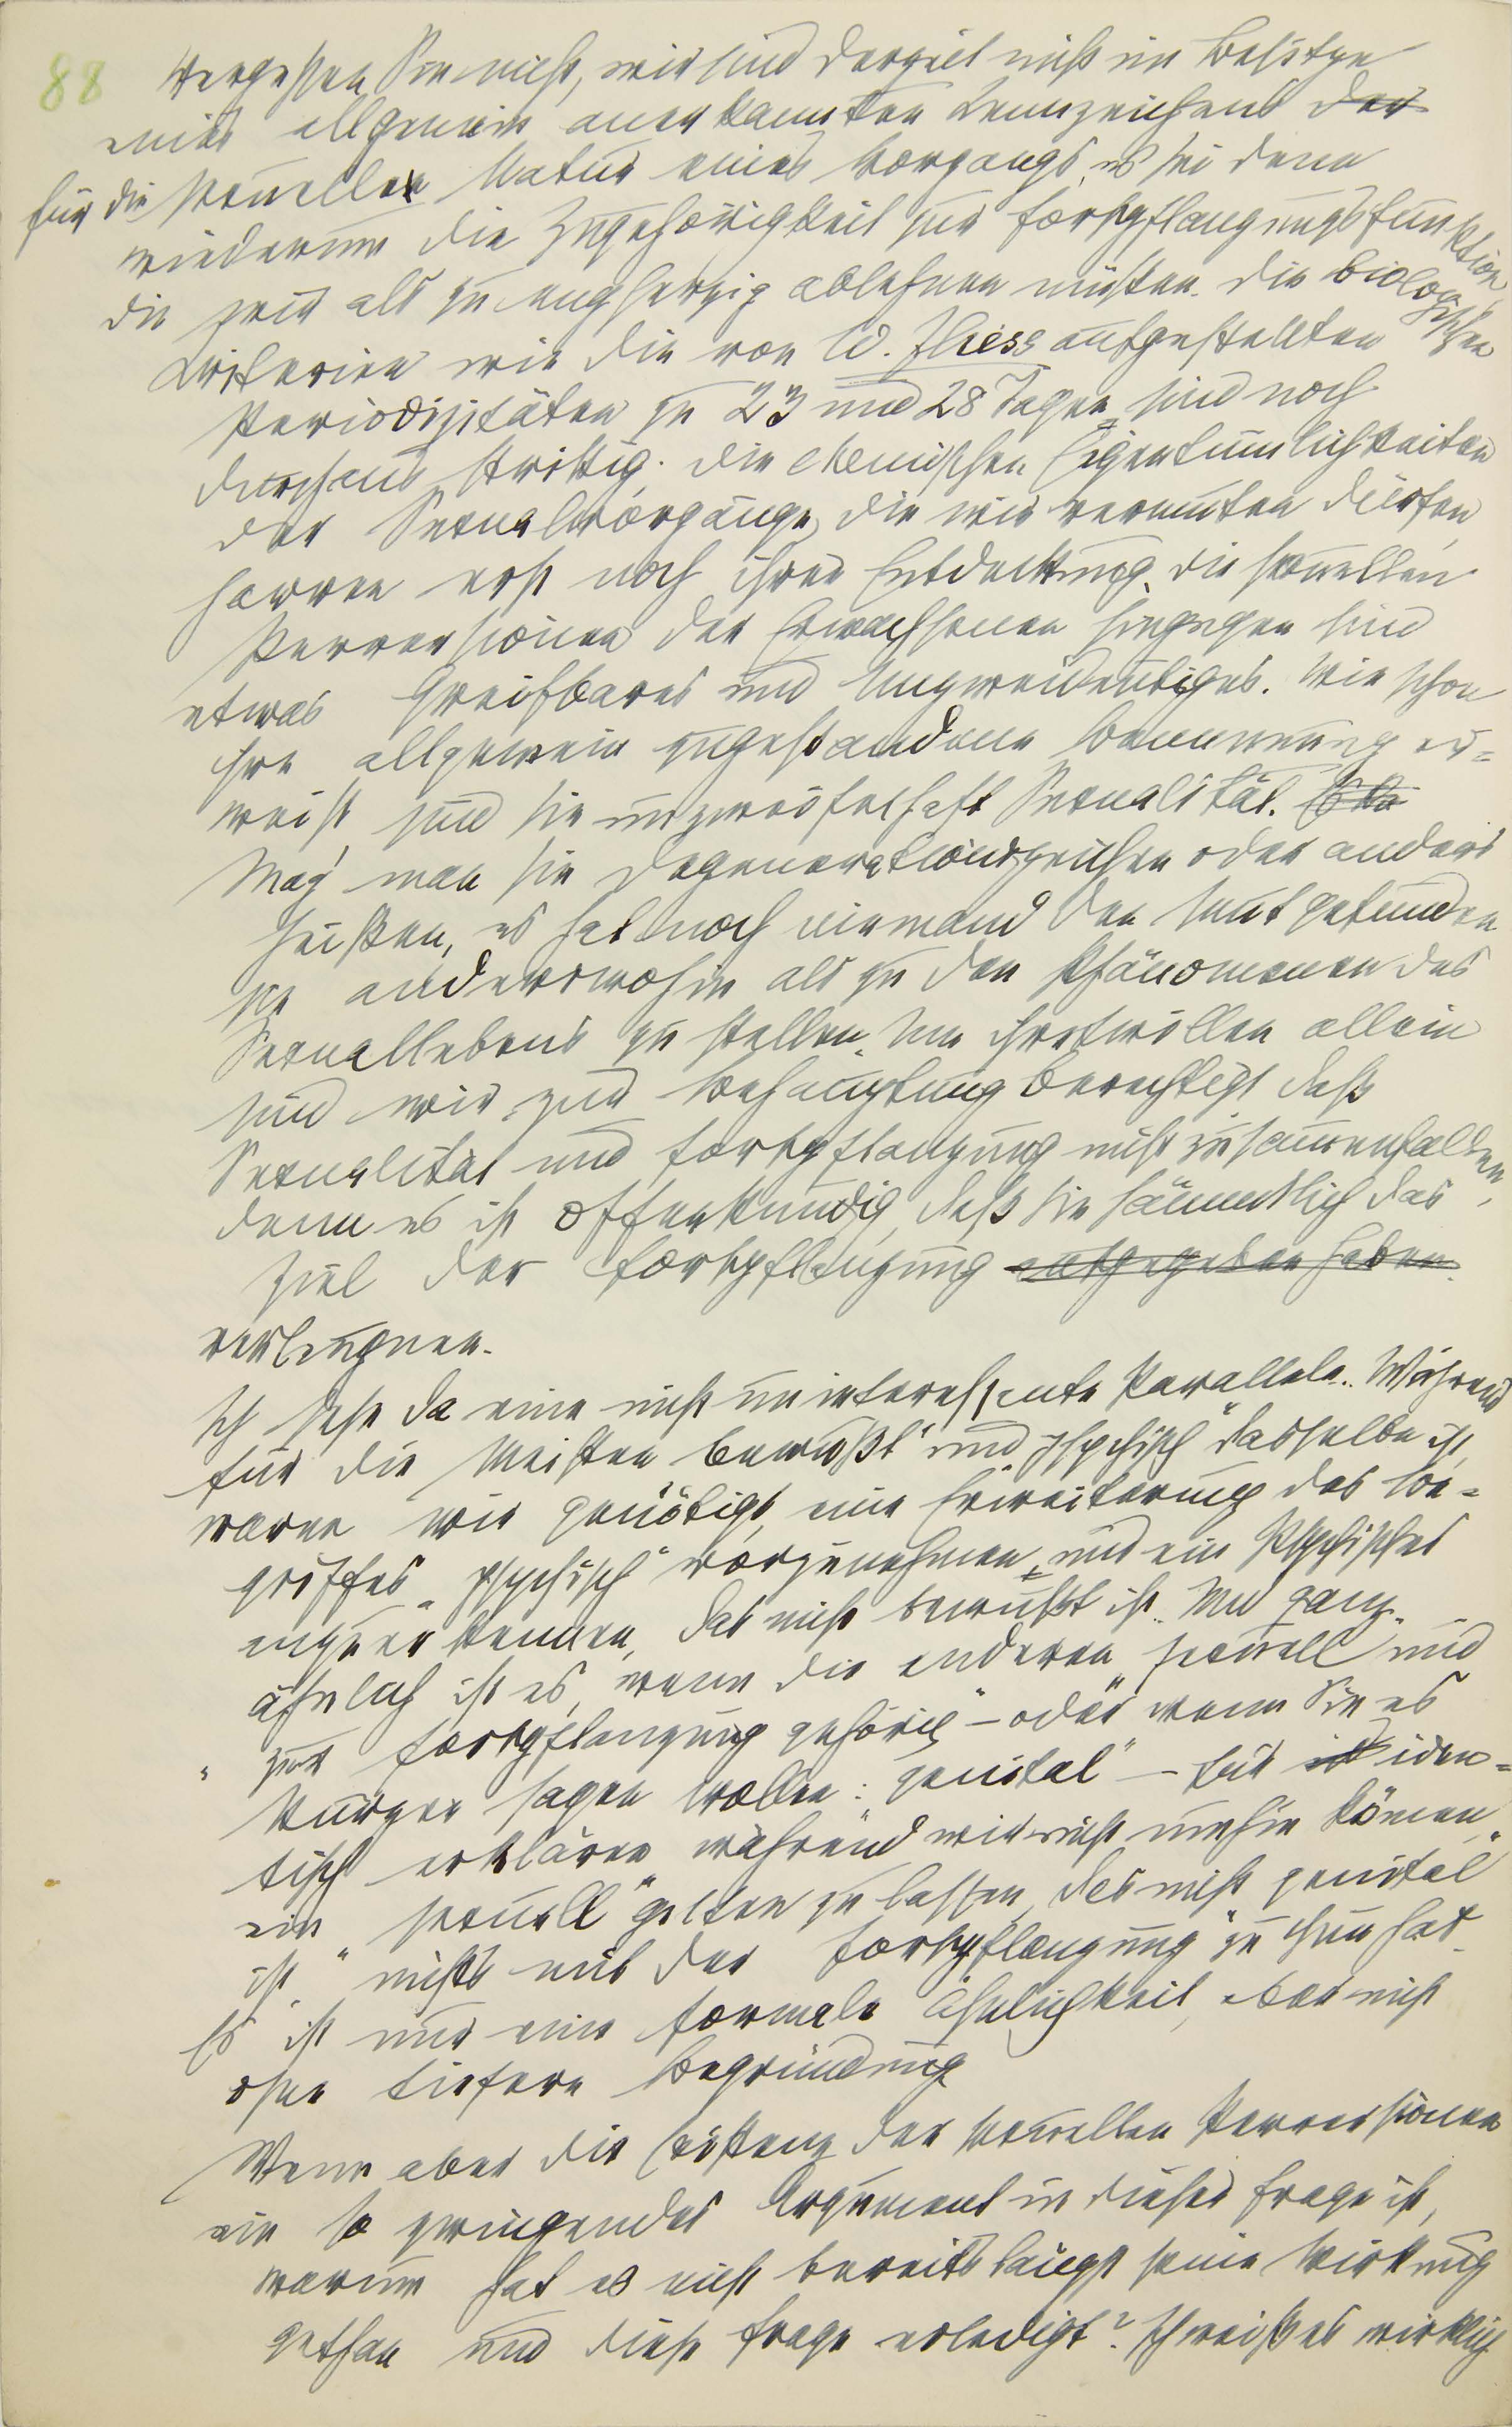 88
Vergessen Sie nicht, wir sind derzeit nicht im Besitze
eines allgemein anerkannten Kennzeichens der
für die sexuelle Natur eines Vorgangs, es sei denn
wiederum die Zugehörigkeit zur Fortpflanzungsfunktion,
die wir als zu engherzig ablehnen müssen. Die biologischen
Kriterien wie die von W. Fliess aufgestellten
Periodizitäten zu 23 und 28 Tagen sind noch
durchaus strittig; die chemischen Eigentümlichkeiten
der Sexualvorgänge, die wir vermuten dürfen,
harren erst noch ihrer Entdeckung. Die sexuellen
Perversionen der Erwachsenen hingegen sind
etwas Greifbares und Unzweideutiges. Wie schon
ihre allgemein zugestandene Benennung er=
weist, sind sie unzweifelhaft Sexualität.
Mag man sie Degenerationszeichen oder anders
heißen, es hat noch niemand den Mut gefunden
sie anderswohin als zu den Phänomenen des
Sexuallebens zu stellen. Um ihretwillen allein
sind wir zur Behauptung berechtigt daß
Sexualität und Fortpflanzung nicht zusammenfallen,
denn es ist offenkundig, daß sie sämmtlich das
Ziel der Fortpflanzung aufgegeben haben.
verleugnen.
Ich sehe da eine nicht uninteressante Parallele. Während
für die Meisten „bewußt“ und „psychisch“ dasselbe ist,
waren wir genötigt, eine Erweiterung des Be=
griffes „psychisch“ vorzunehmen und ein Psychisches
anzuerkennen, das nicht bewußt ist. Und ganz
ähnlich ist es, wenn die anderen „sexuell“ und
„zur Fortpflanzung gehörig“ – oder wenn Sie es
kürzer sagen wollen: „genital“ – für iden=
tisch erklären während wir nicht umhin können,
ein „sexuell“ gelten zu lassen, das nicht „genital“
ist, nichts mit der Fortpflanzung zu thun hat.
Es ist nur eine formale Ähnlichkeit, aber nicht
ohne tiefere Begründung
Wenn aber die Existenz der sexuellen Perversionen
ein so zwingendes Argument in dieser Frage ist,
warum hat es nicht bereits längst seine Wirkung
gethan und diese Frage erledigt? Ich weiß es wirklich